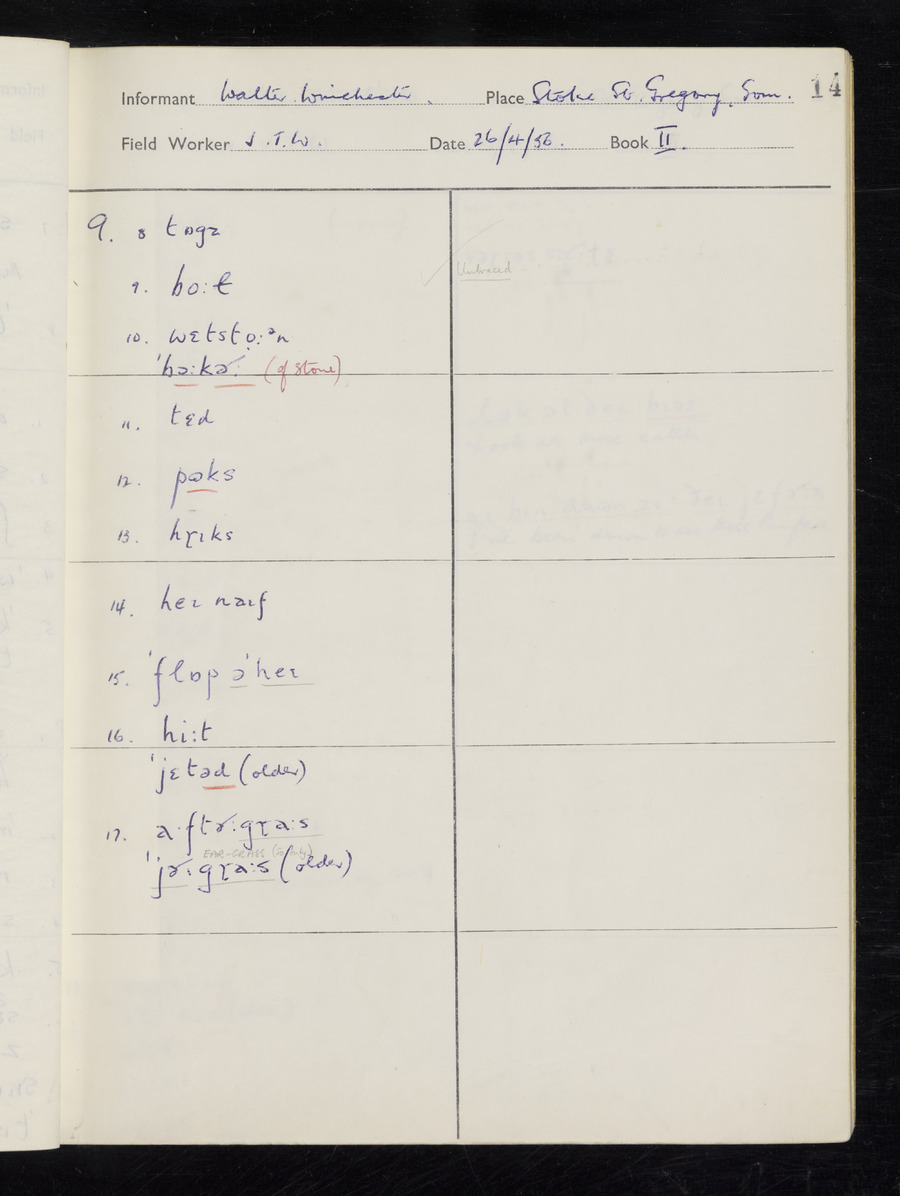 Informant Walter Winchester. Place Stoke St. Gregory, Som. 14
Field Worker J.T.W. Date 26/4/56. Book II.
9. 8 tɒgz
9. bo:ɫ
10. wɛtsto̩:ᵊn
Untraced
'bə:kɚ: (of stone)
11. tɛd
12. pɷks
13. hɽɪks
14. heɪ naɪf
15. 'flɒp ə'heɪ
16. hi:t
'jɛtəd (older)
17. a·ftɚ:gɽa:s
EAR-GRASS
'jɚ:gɽa:s (older)